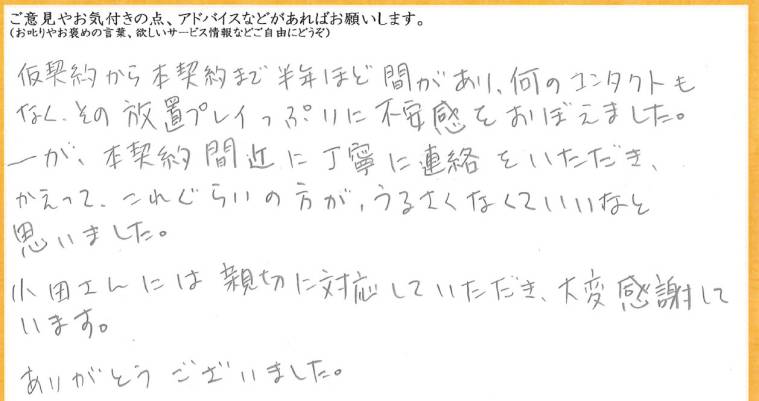 ご意見やお気付きの点、アドバイスなどがあればお願いします。
(お叱りやお褒めの言葉、欲しいサービス情報などご自由にどうぞ)
仮契約から本契約まで半年ほど間があり、何のコンタクトも
なく、その放置プレイっぷりに不安感をおぼえました。
一が、本契約間近に丁寧に連絡をいただき、
かえって、これぐらいの方が、うるさくなくていいなと
思いました。
小田さんには親切に対応していただき、大変感謝して
います。
ありがとうございました。